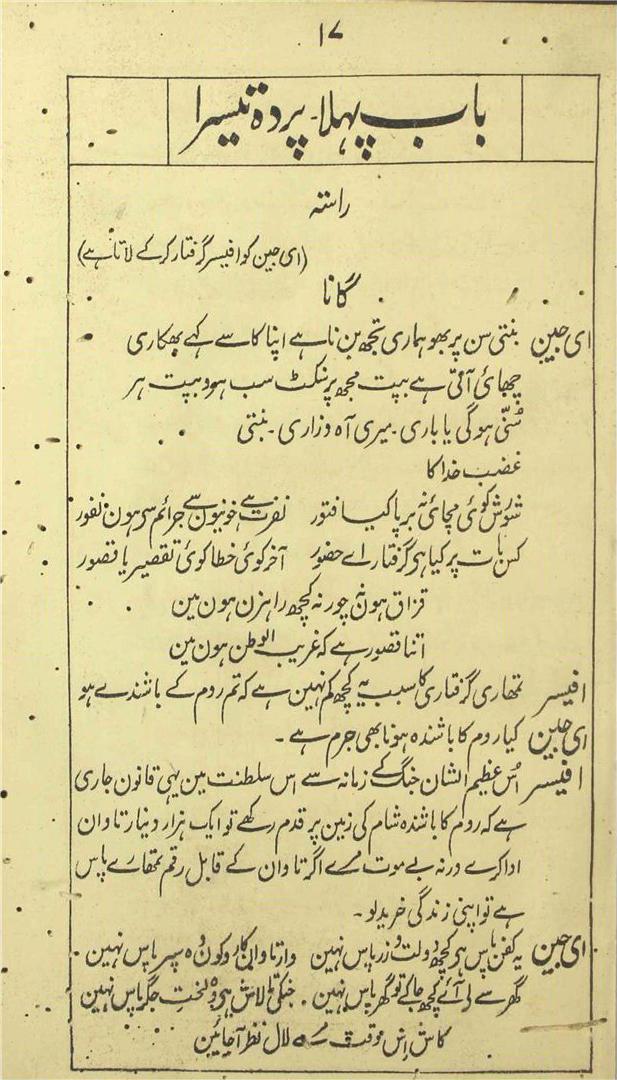 ۱۷
باب پہلا۔ پردہ تیسرا
راستہ
(ای جین کو افیسر گرفتار کر کے لاتا ہے)
گانا
ای جین بنتی سن پربھو ہماری تجھ بن نا ہے اپنا کا سے کہے بھکاری
چھائی آئی ہے بپت مجھ پر سنکٹ سب ہو دبپت ہر
سُنّی ہوگی یا باری۔ میری آہ و زاری۔ بنتی
غضب خدا کا
شورش کوئی مچائی نہ برپا کیا فتور نفرت ہے خونیوں سے جرائم سے ہون نفور
کس بات پر کیا ہے گرفتار اے حضور آخر کوئی خطا کوئی تقصیر یا قصور
قزاق ہون نہ چور نہ کچھ راہزن ہون مین
اتنا قصور ہے کہ غریب الوطن ہون مین
افیسر تمھاری گرفتاری کا سبب یہ کچھ کم نہین ہے کہ تم روم کے باشندے ہو
ای جین کیا روم کا باشندہ ہونا بھی جرم ہے۔
افیسر اُس عظیم الشان جنگ کے زمانہ سے اس سلطنت مین یہی قانون جاری
ہے کہ روم کا باشندہ شام کی زمین پر قدم رکھے تو ایک ہزار دینار تاوان
ادا کرے ورنہ بے موت مرے اگر تاوان کے قابل رقم تمھارے پاس
ہے تو اپنی زندگی خرید لو۔
ای جین یہ کفن پاس ہے کچھ دولت و زر پاس نہین وار تاوان کا روکون وہ سپر پاس نہین
گھر سے لے آئے کچھ جا کے تو گھر پاس نہین۔ جنکی تالاش ہے وہ لختِ جگر پاس نہین
کاش اس موقت مرے لال نظر آجائین